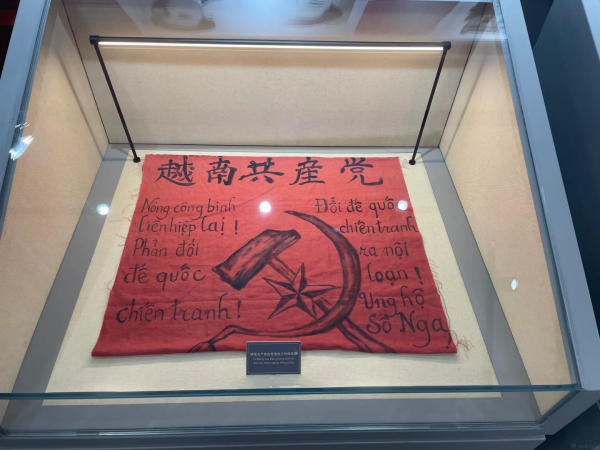 越南共産党
Nông công binh
liên hiệp lại!
Phản đối
đế quốc
chiến tranh!
Đổi đế quốc
chiến tranh
ra nội
loạn!
Ủng hộ
Sô Nga